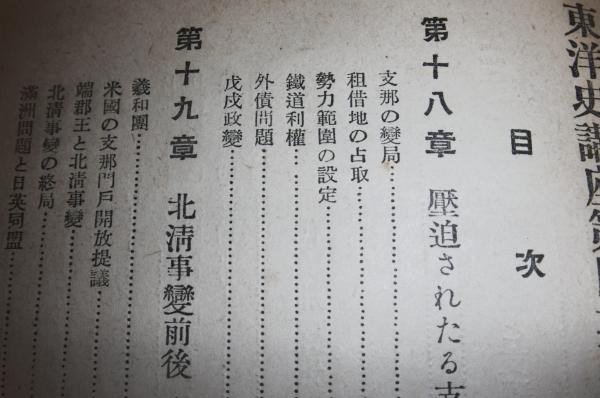 東洋史講座第
目次
第十八章 壓迫されたる支
支那の變局
租借地の占取
勢力範圍の設定
鐵道利權
外債問題
戊戌政變
第十九章 北淸事變前後
義和團
米國の支那門戶開放提議
端郡王と北淸事變
北淸事變の終局
滿洲問題と日英同盟